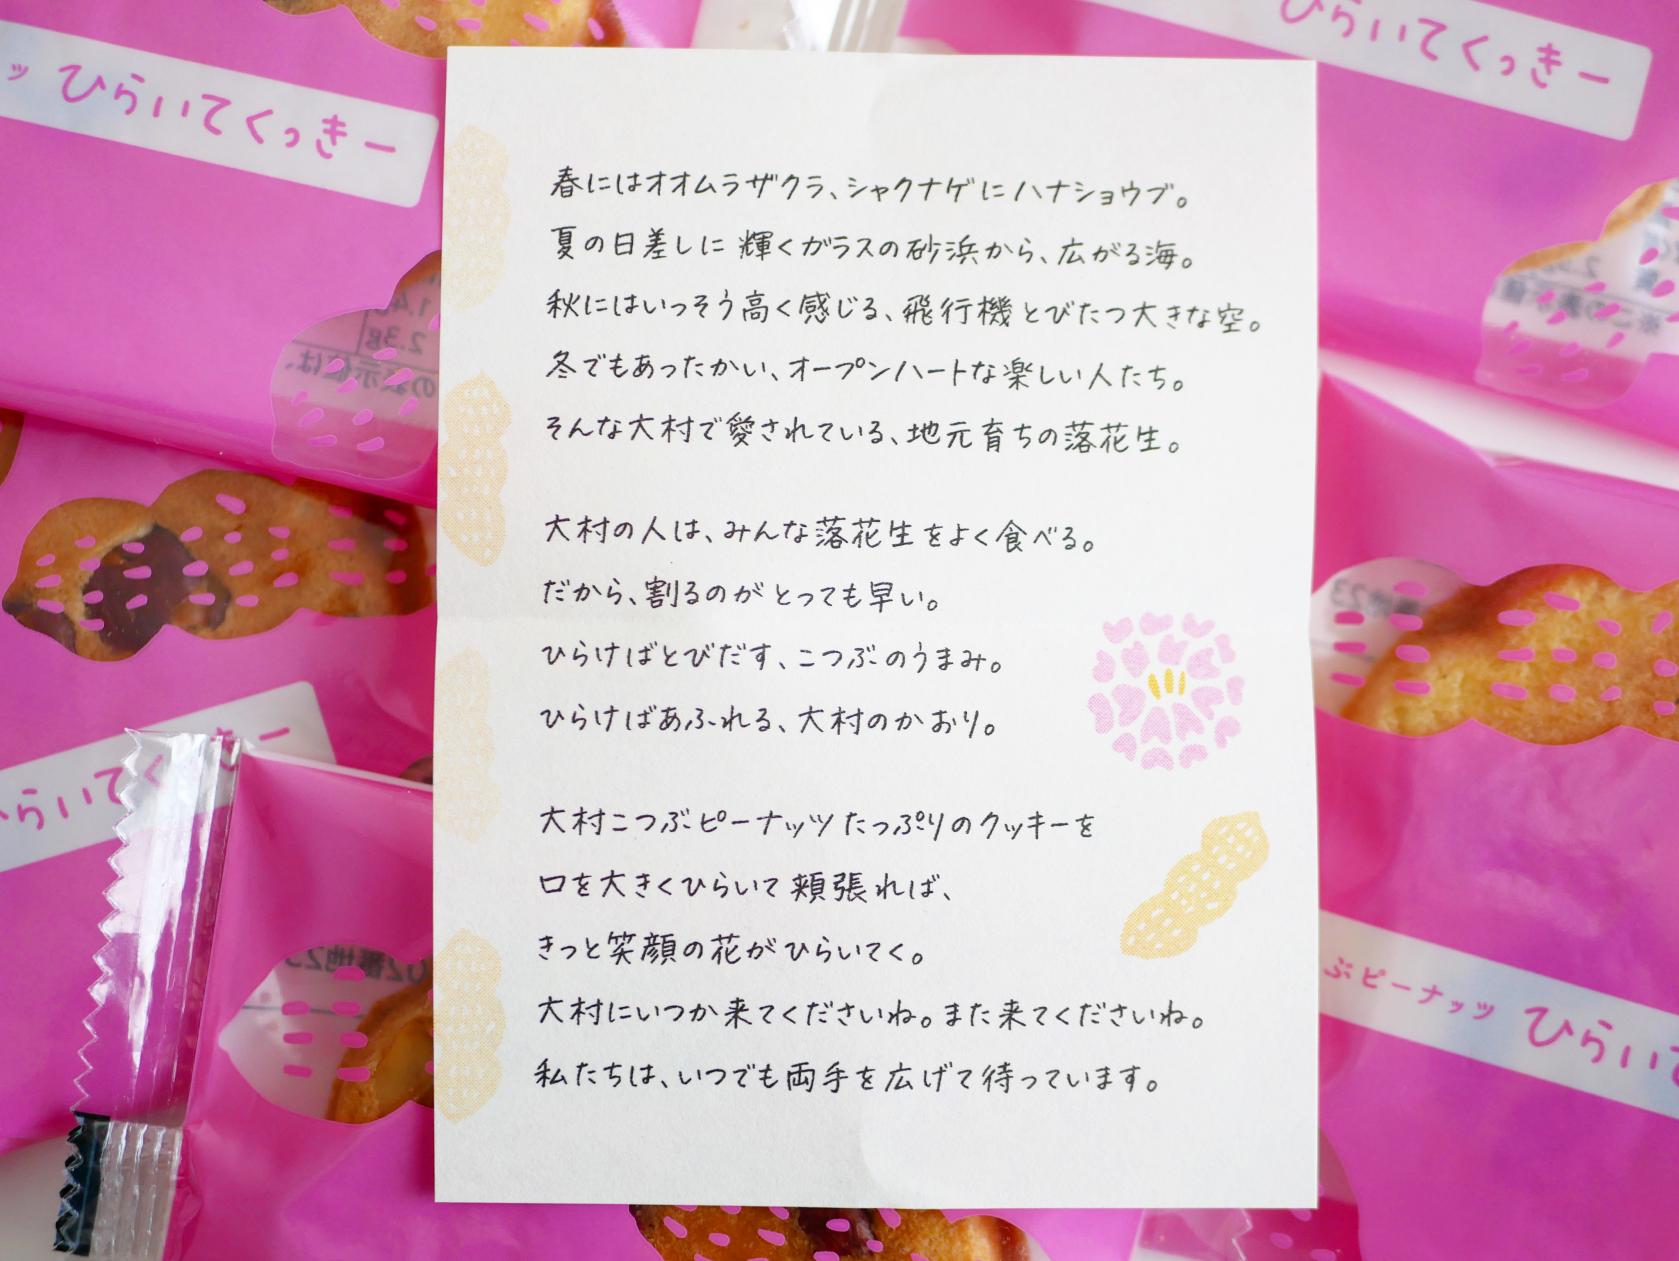 ッ ひらいてくっきー
ひらいてくっきー
春にはオオムラザクラ、シャクナゲにハナショウブ。
夏の日差しに輝くガラスの砂浜から、広がる海。
秋にはいっそう高く感じる、飛行機とびたつ大きな空。
冬でもあったかい、オープンハートな楽しい人たち。
そんな大村で愛されている、地元育ちの落花生。
大村の人は、みんな落花生をよく食べる。
だから、割るのがとっても早い。
ひらけばとびだす、こつぶのうまみ。
ひらけばあふれる、大村のかおり。
大村こつぶピーナッツたっぷりのクッキーを
口を大きくひらいて頬張れば、
きっと笑顔の花がひらいてく。
大村にいつか来てくださいね。また来てくださいね。
私たちは、いつでも両手を広げて待っています。
らいてく きー
ぶピーナッツ ひらいて
2.3g
の表示値は、
02番地23